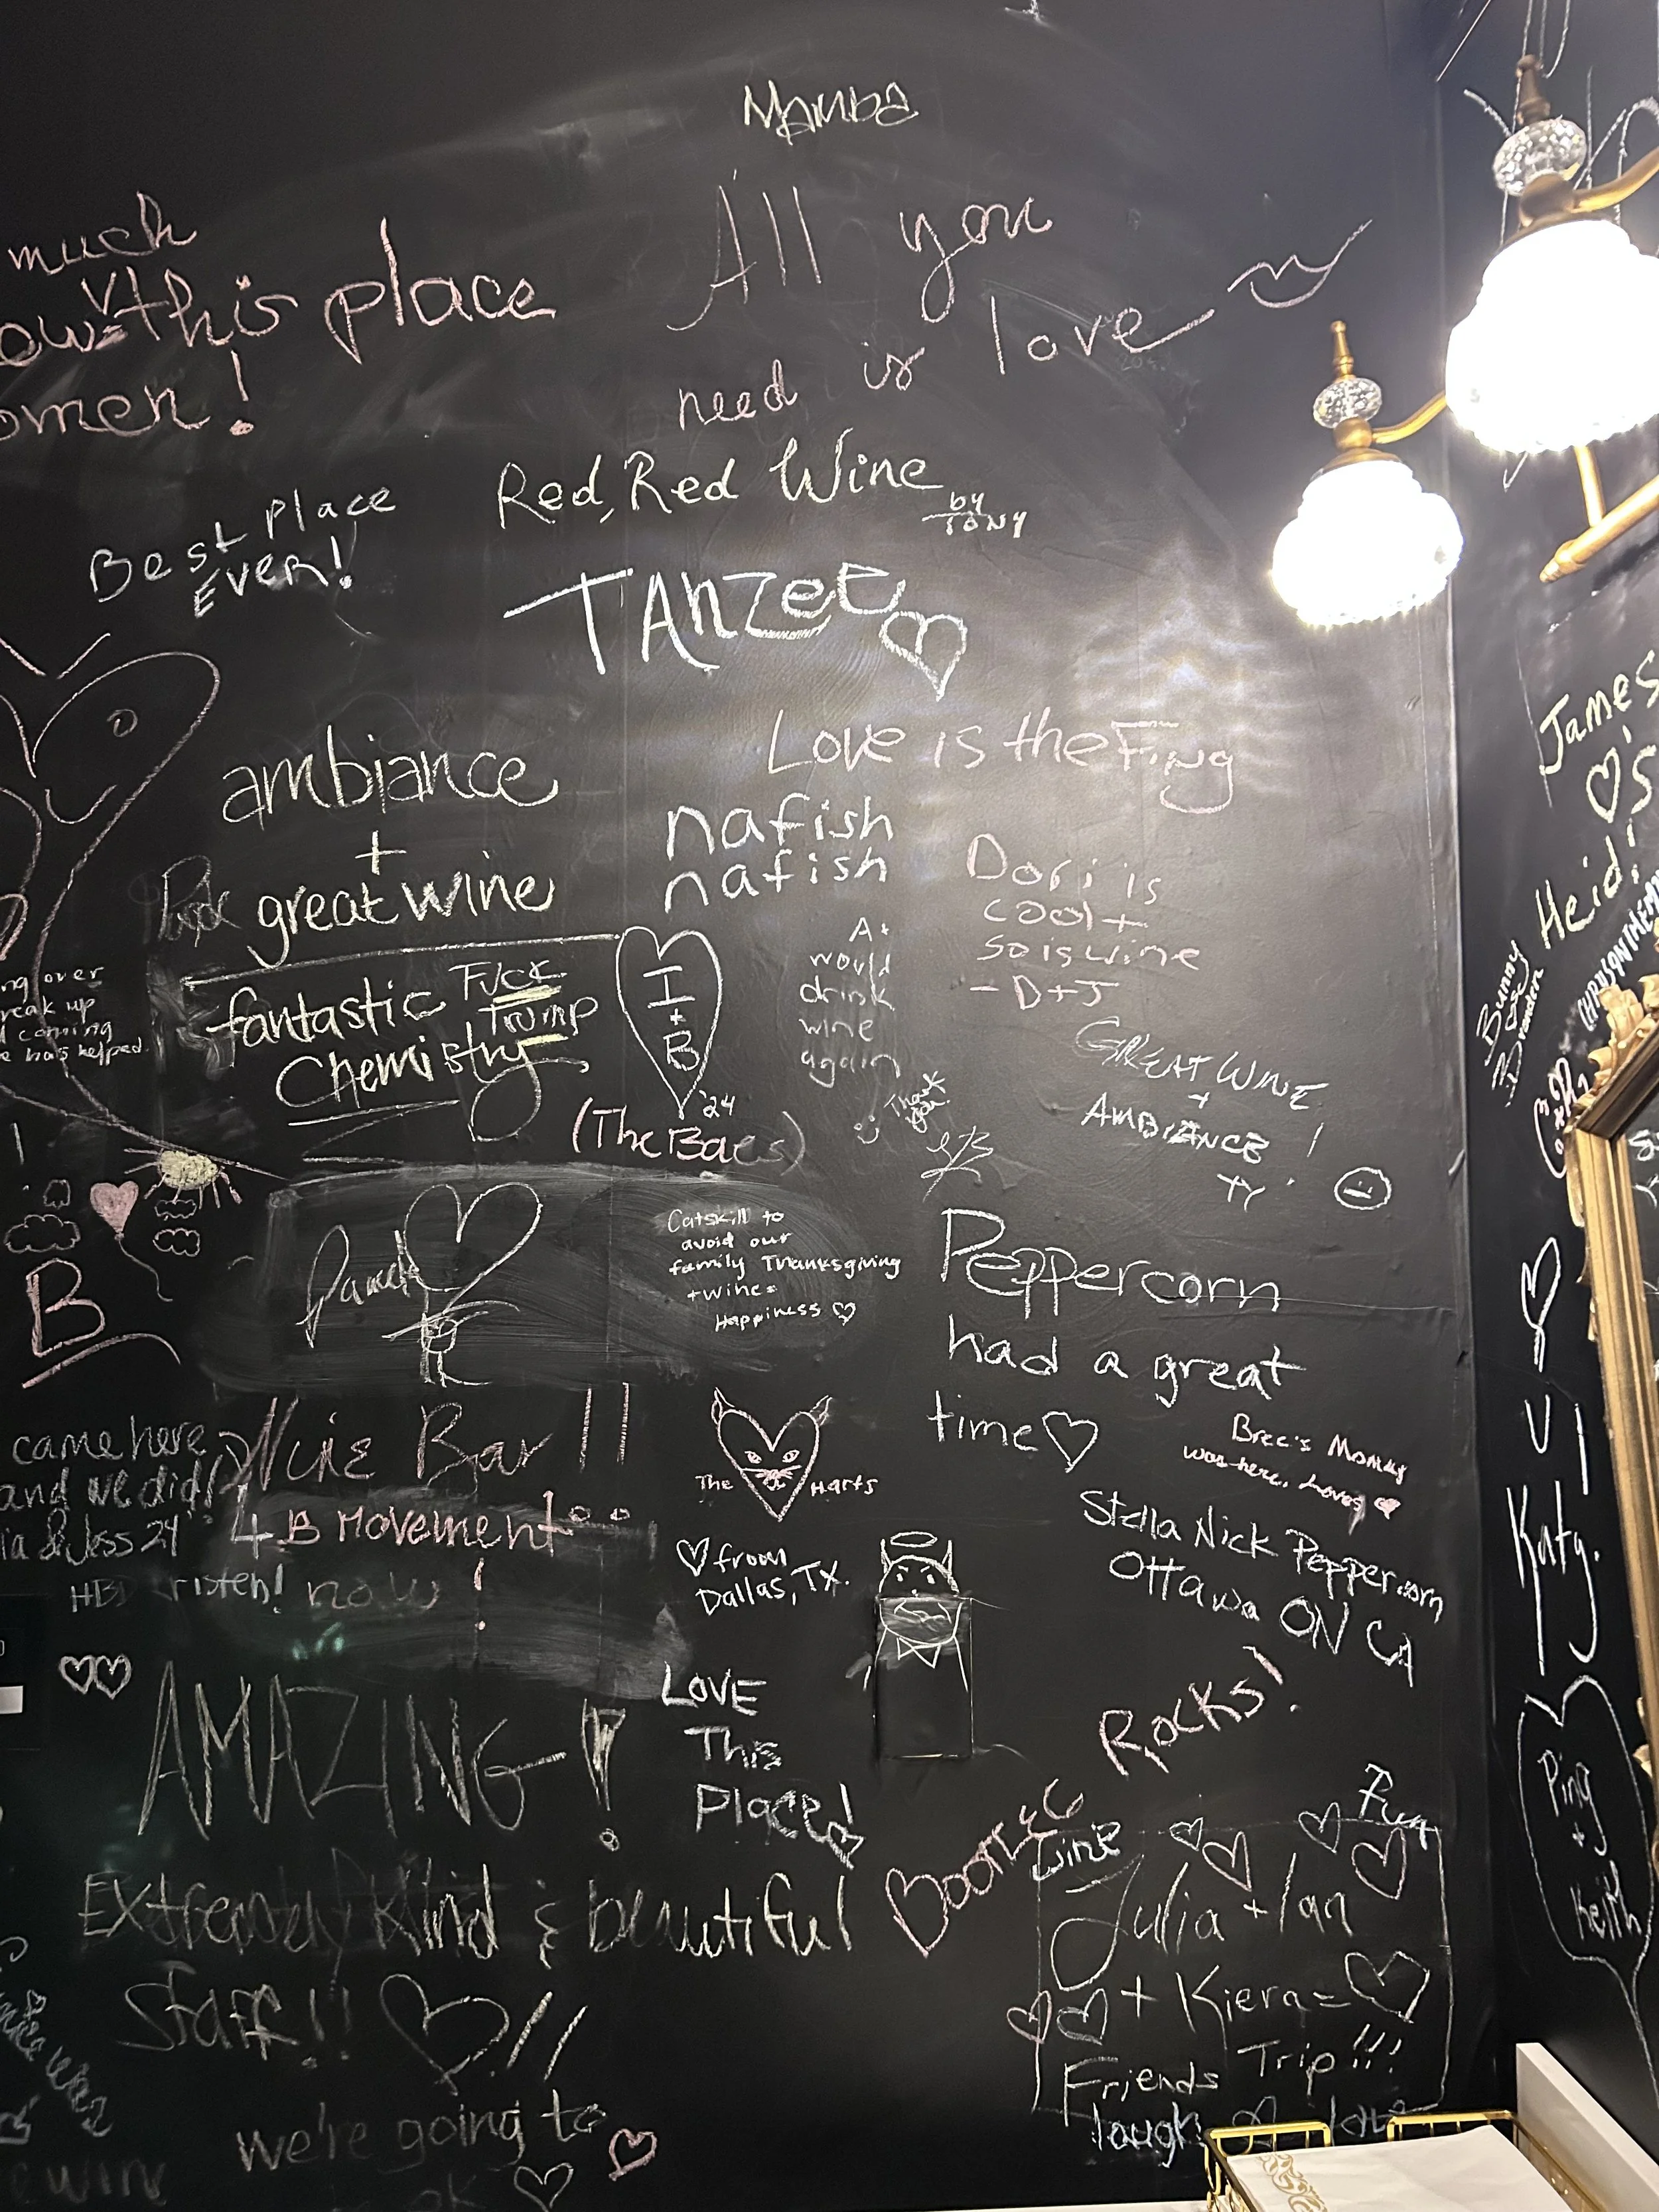 Mamba
All you
need is love
much
this place
omen!
Red, Red Wine
by
TONY
Best Place
Ever!
TAnzee
ambiance
+
great wine
fantastic
Chemistry
Fuck
Trump
Love is the F-ing
nafish
nafish
I
+
B
'24
(The Baes)
A+
would
drink
wine
again
Thank
you!
Dori is
cool +
so is wine
- D+J
GREAT WINE
+
AMBIANCE!
TY
ng over
reak up
d coming
e has helped.
B
Catskill to
avoid our
family Thanksgiving
+ wine =
Happiness
Peppercorn
had a great
time
Bree's Mommy
was here. Loves
Stella Nick Peppercorn
Ottawa ON CA
came here
and we did!
ia & Jess 24'
Bar!!
4 B Movement
now!
HBD risten!
The Harts
from
Dallas, TX.
AMAZING!
LOVE
This
Place!
Rocks!
Wine
Fun
Extremely Kind & beautiful
Staff!!
!!
Julia + Ian
+ Kiera =
Friends Trip!!!
laugh
we're going to
ok
James
S
Heidi
Bunny
Katy.
Ping
+
Keith